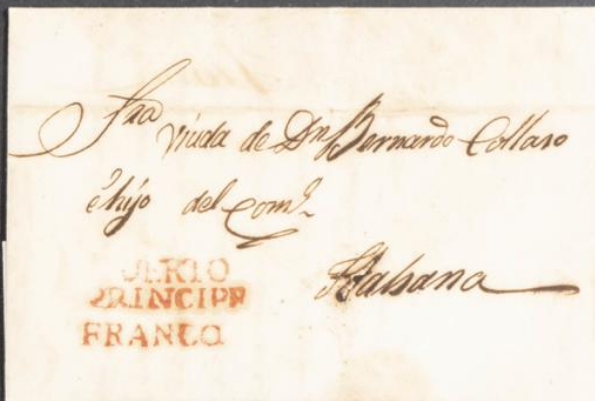 Sra
viuda de Dn Bernardo Collaso
é hijo del Com.o
Habana
PUERTO
PRINCIPE
FRANCO